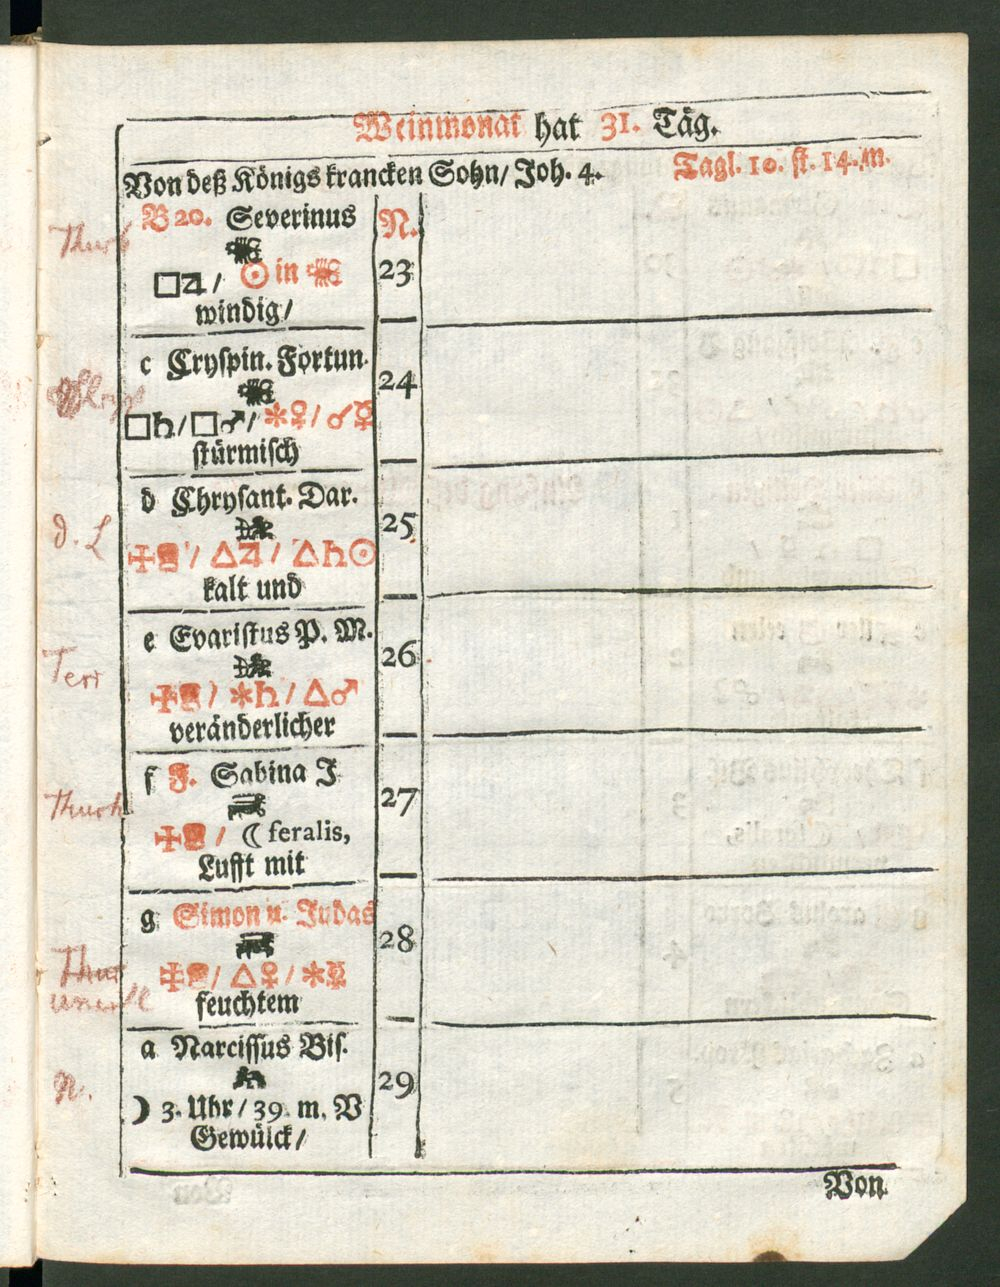 Weinmonat hat 31. Täg.
Von deß Königs krancken Sohn/ Joh. 4.
Tagl. 10. st. 14. m.
B 20. Severinus
N.
23
□♃/ ☉ in ♏
windig/
c Cryspin. Fortun.
♏
24
□♄/□♂/ ✶♀/ ☌☿
stürmisch
d Chrysant. Dar.
♐
25
△♃/ △♄☉
kalt und
e Evaristus P. M.
♐
26
✶♄/ △♂
veränderlicher
f F. Sabina J
♑
27
☾ feralis,
Lufft mit
g Simon u. Judas
♑
28
△♀/ ✶☿
feuchtem
a Narcissus Bis.
♒
29
☽ 3. Uhr/ 39. m. V
Gewülck/
Von
d. L
Terr
N.